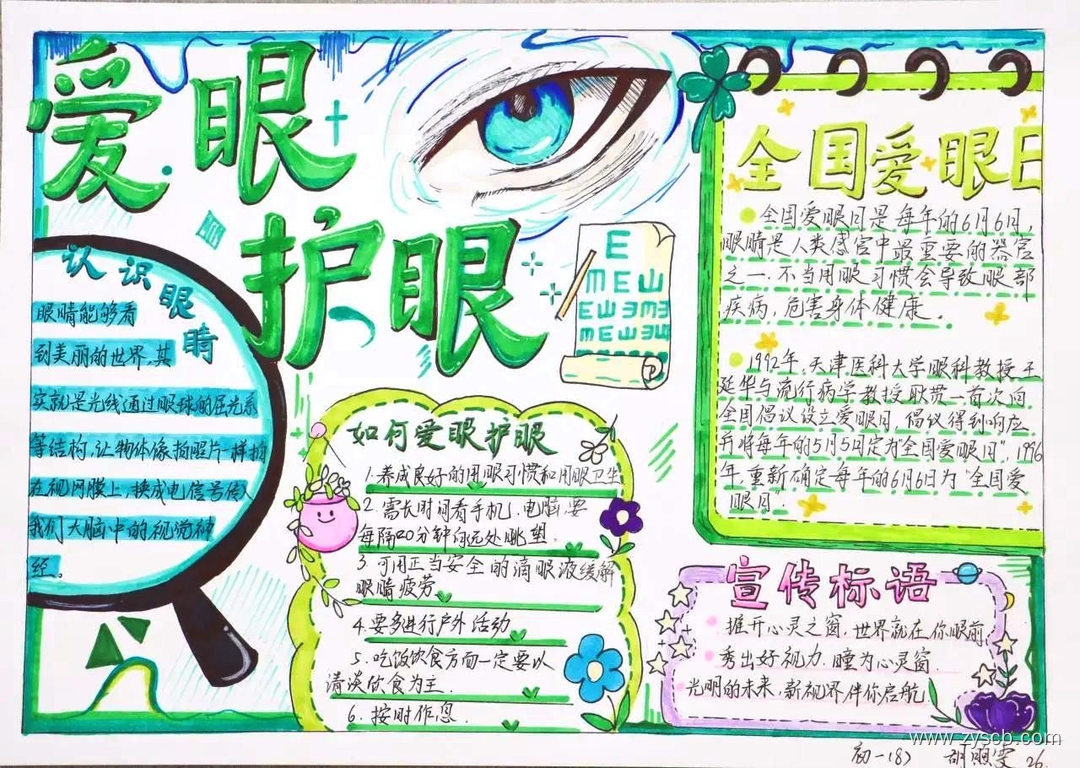 爱眼
护眼
认识眼睛
眼睛能够看
到美丽的世界,其
实就是光线通过眼球的屈光系
等结构,让物体像拍照片一样拍
在视网膜上,换成电信号传入
我们大脑中的视觉神
经。
E
MEW
EWEME
MEWEW
如何爱眼护眼
1.养成良好的用眼习惯和用眼卫生
2.需长时间看手机、电脑,要
每隔20分钟向远处眺望.
3.可用正当安全的滴眼液缓解
眼睛疲劳
4.要多进行户外活动
5.吃饭饮食方面一定要以
清淡饮食为主.
6.按时作息.
全国爱眼日
全国爱眼日是每年的6月6日,
眼睛是人类感官中最重要的器官
之一.不当用眼习惯会导致眼部
疾病,危害身体健康.
1992年,天津医科大学眼科教授王
延华与流行病学教授耿贯一首次向
全国倡议设立爱眼日,倡议得到响应
并将每年的5月5日定为"全国爱眼日".1996
年,重新确定每年的6月6日为"全国爱
眼日"
宣传标语
推开心灵之窗,世界就在你眼前
秀出好视力,瞳为心灵窗
光明的未来,新视界伴你启航
www.zyscb.com
初一(8) 胡 26.